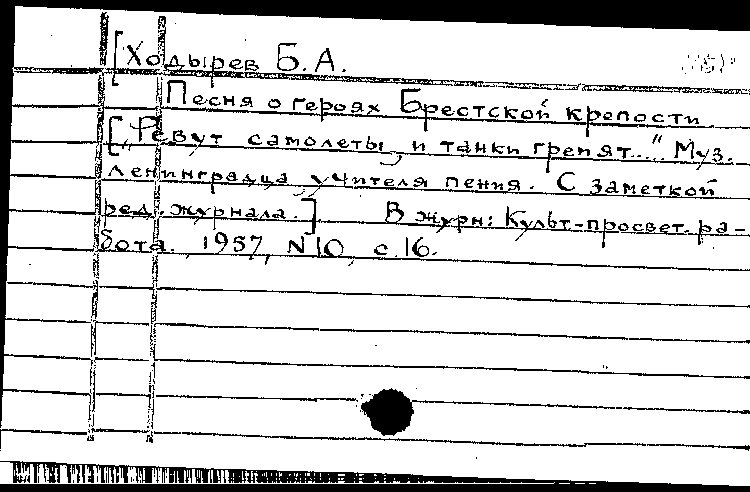 [Ходырев Б.А.
Песня о героях Брестской крепости.
[„Ревут самолеты и танки гремят...." Муз.
ленинградца, учителя пения. С заметкой
ред. журнала.] В журн: Культ-просвет. ра-
бота. 1957, N 10, с. 16.